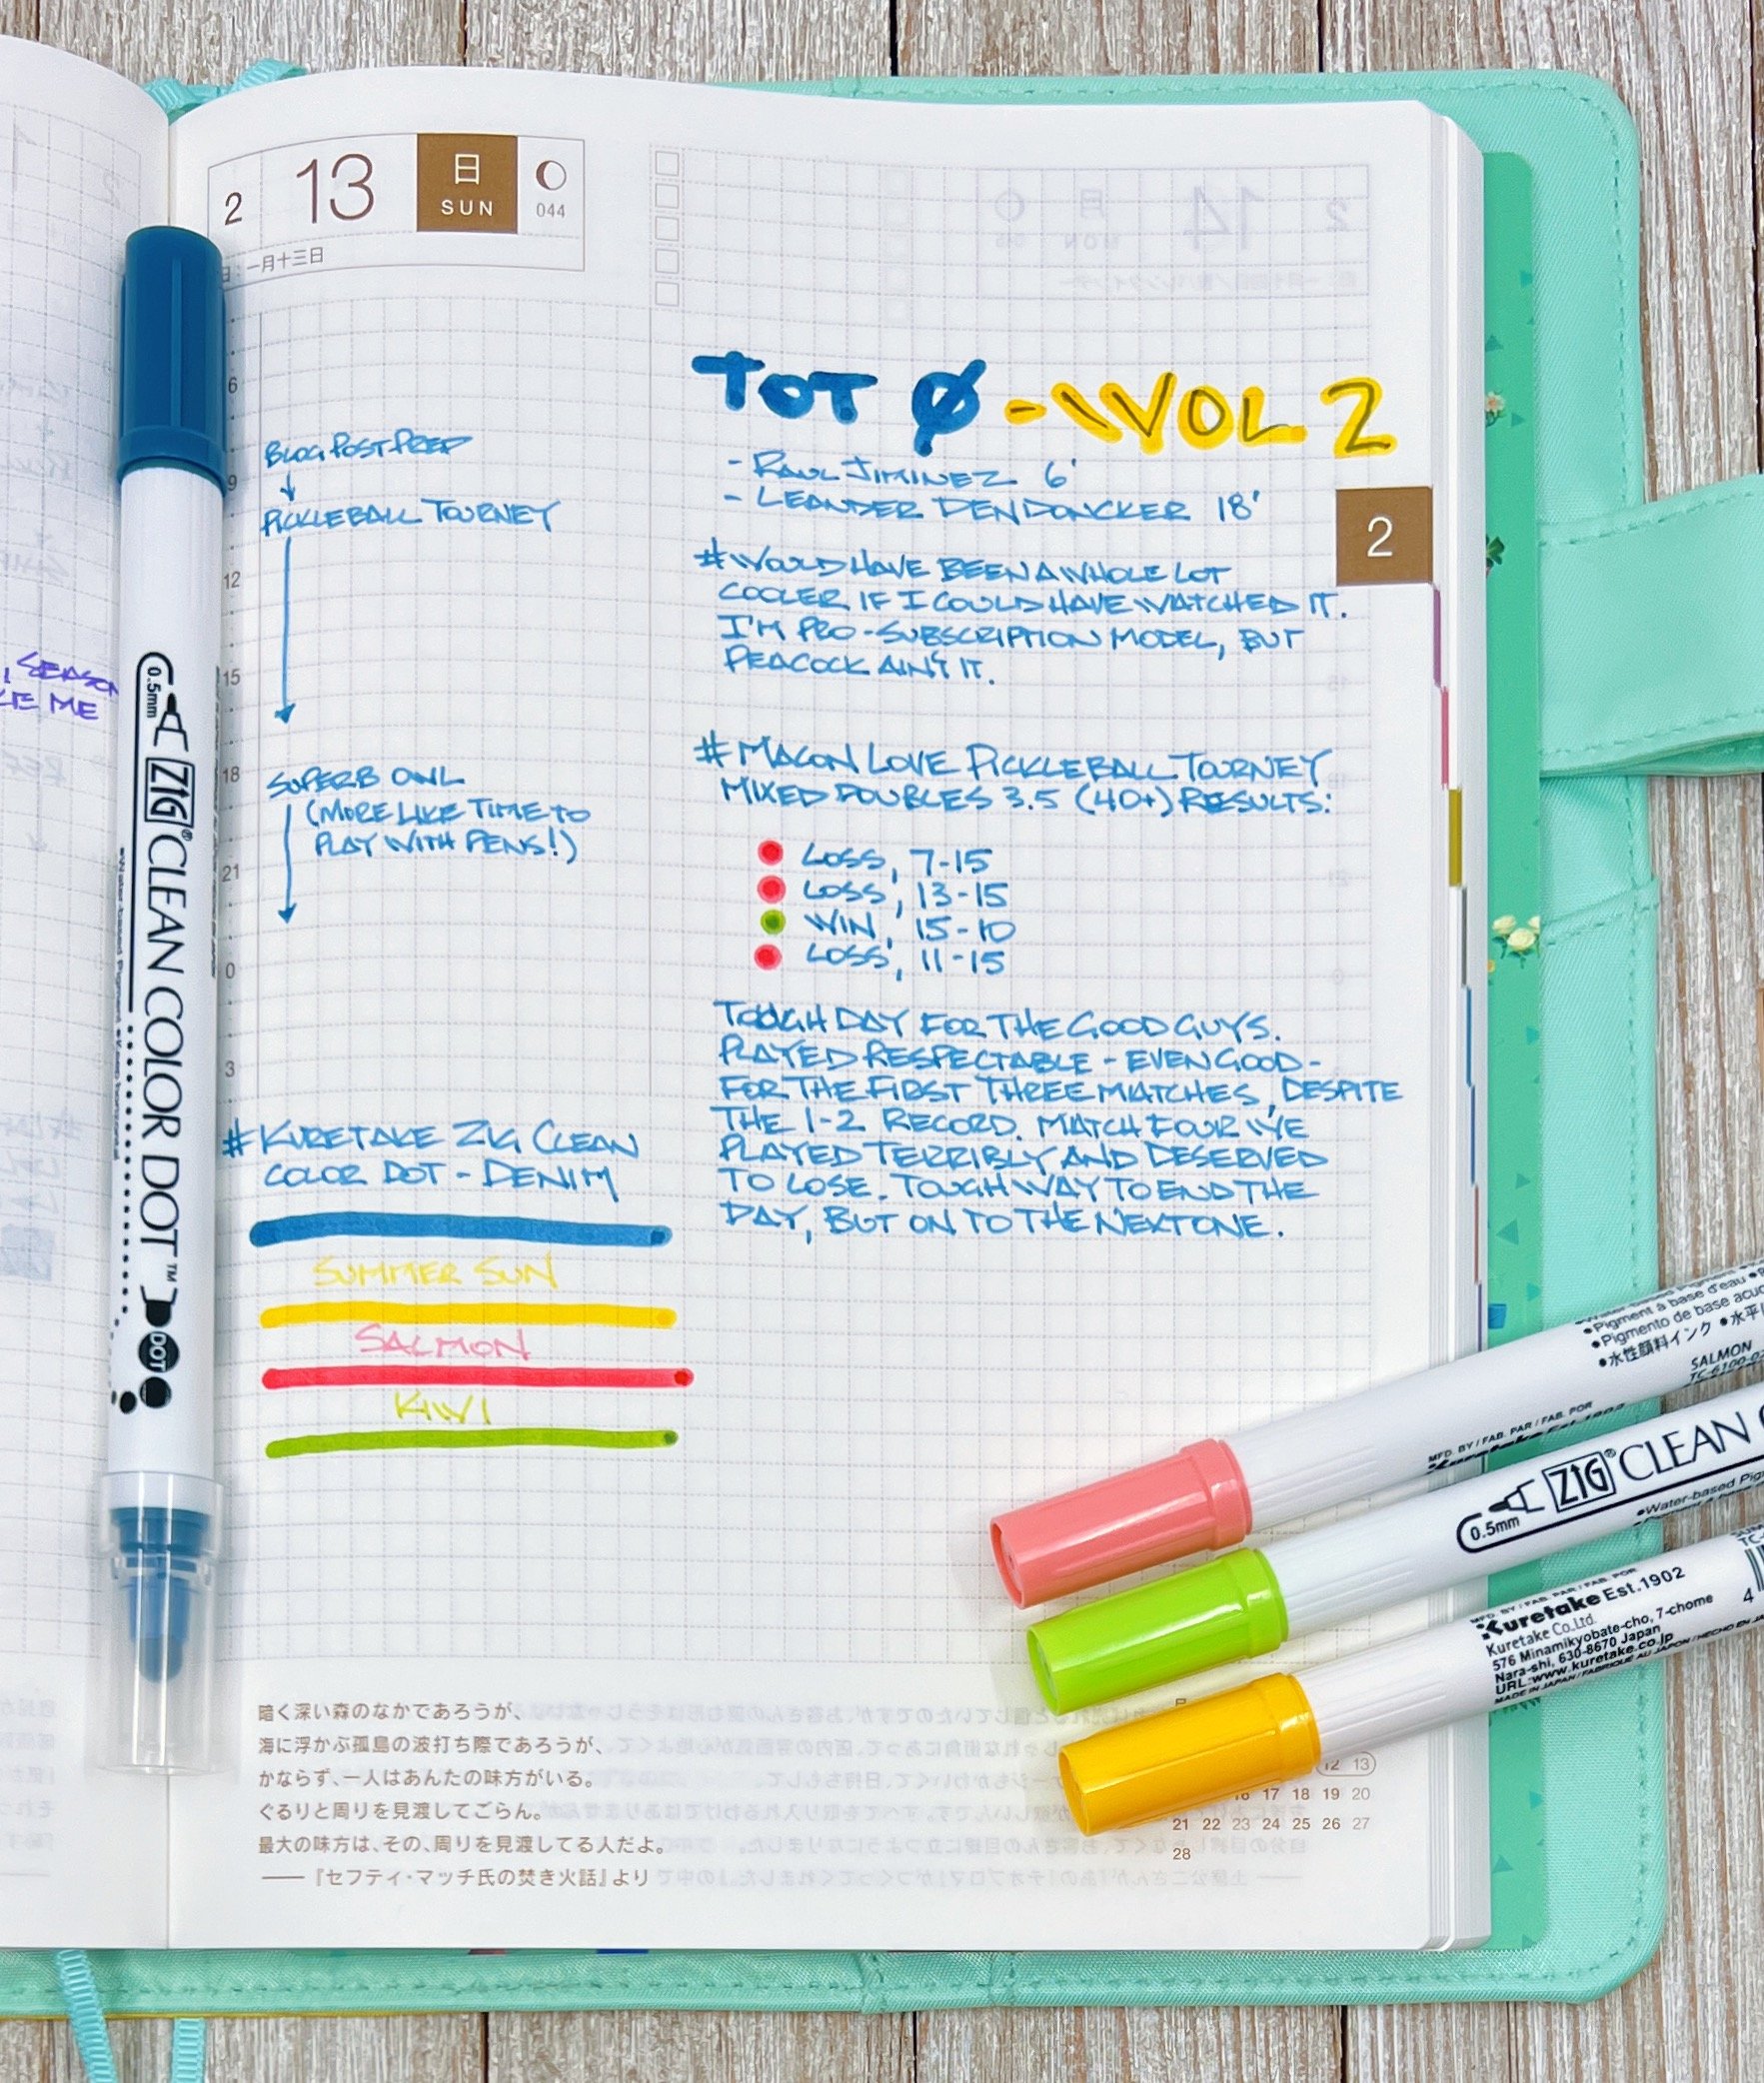 2 13 日 SUN 044
日:一月十三日
TOT Ø - WOL 2
- RAUL JIMINEZ 6'
- LEANDER DENDONCKER 18'
# WOULD HAVE BEEN A WHOLE LOT
COOLER IF I COULD HAVE WATCHED IT.
I'M PRO-SUBSCRIPTION MODEL, BUT
PEACOCK AIN'T IT.
# MACON LOVE PICKLEBALL TOURNEY
MIXED DOUBLES 3.5 (40+) RESULTS:
LOSS, 7-15
LOSS, 13-15
WIN, 15-10
LOSS, 11-15
TOUGH DAY FOR THE GOOD GUYS.
PLAYED RESPECTABLE - EVEN GOOD -
FOR THE FIRST THREE MATCHES, DESPITE
THE 1-2 RECORD. MATCH FOUR WE
PLAYED TERRIBLY AND DESERVED
TO LOSE. TOUGH WAY TO END THE
DAY, BUT ON TO THE NEXT ONE.
2
6
BLOG POST PREP
9
PICKLEBALL TOURNEY
12
15
18
SUPERB OWL
(MORE LIKE TIME TO
PLAY WITH PENS!)
21
0
3
# KURETAKE ZIG CLEAN
COLOR DOT - DENIM
SUMMER SUN
SALMON
KIWI
SEASON
ME
0.5mm ZIG® CLEAN COLOR DOT™ DOT
暗く深い森のなかであろうが、
海に浮かぶ孤島の波打ち際であろうが、
かならず、一人はあんたの味方がいる。
ぐるりと周りを見渡してごらん。
最大の味方は、その、周りを見渡してる人だよ。
——『セフティ・マッチ氏の焚き火話』より
12 13
16 17 18 19 20
21 22 23 24 25 26 27
28
•Pigment à base d'eau
•Pigmento de base acuo
•水性顔料インク •水平
SALMON
MFD. BY / FAB. PAR / FAB. POR
Kuretake Est.1902
0.5mm ZIG® CLEAN
•Water-based Pig
MFD. BY / FAB. PAR / FAB. POR
Kuretake Est.1902
Kuretake Co.,Ltd.
576 Minamikyobate-cho, 7-chome
Nara-shi, 630-8670 Japan
URL:www.kuretake.co.jp
MADE IN JAPAN / FABRIQUÉ AU JAPON / HECHO EN
4